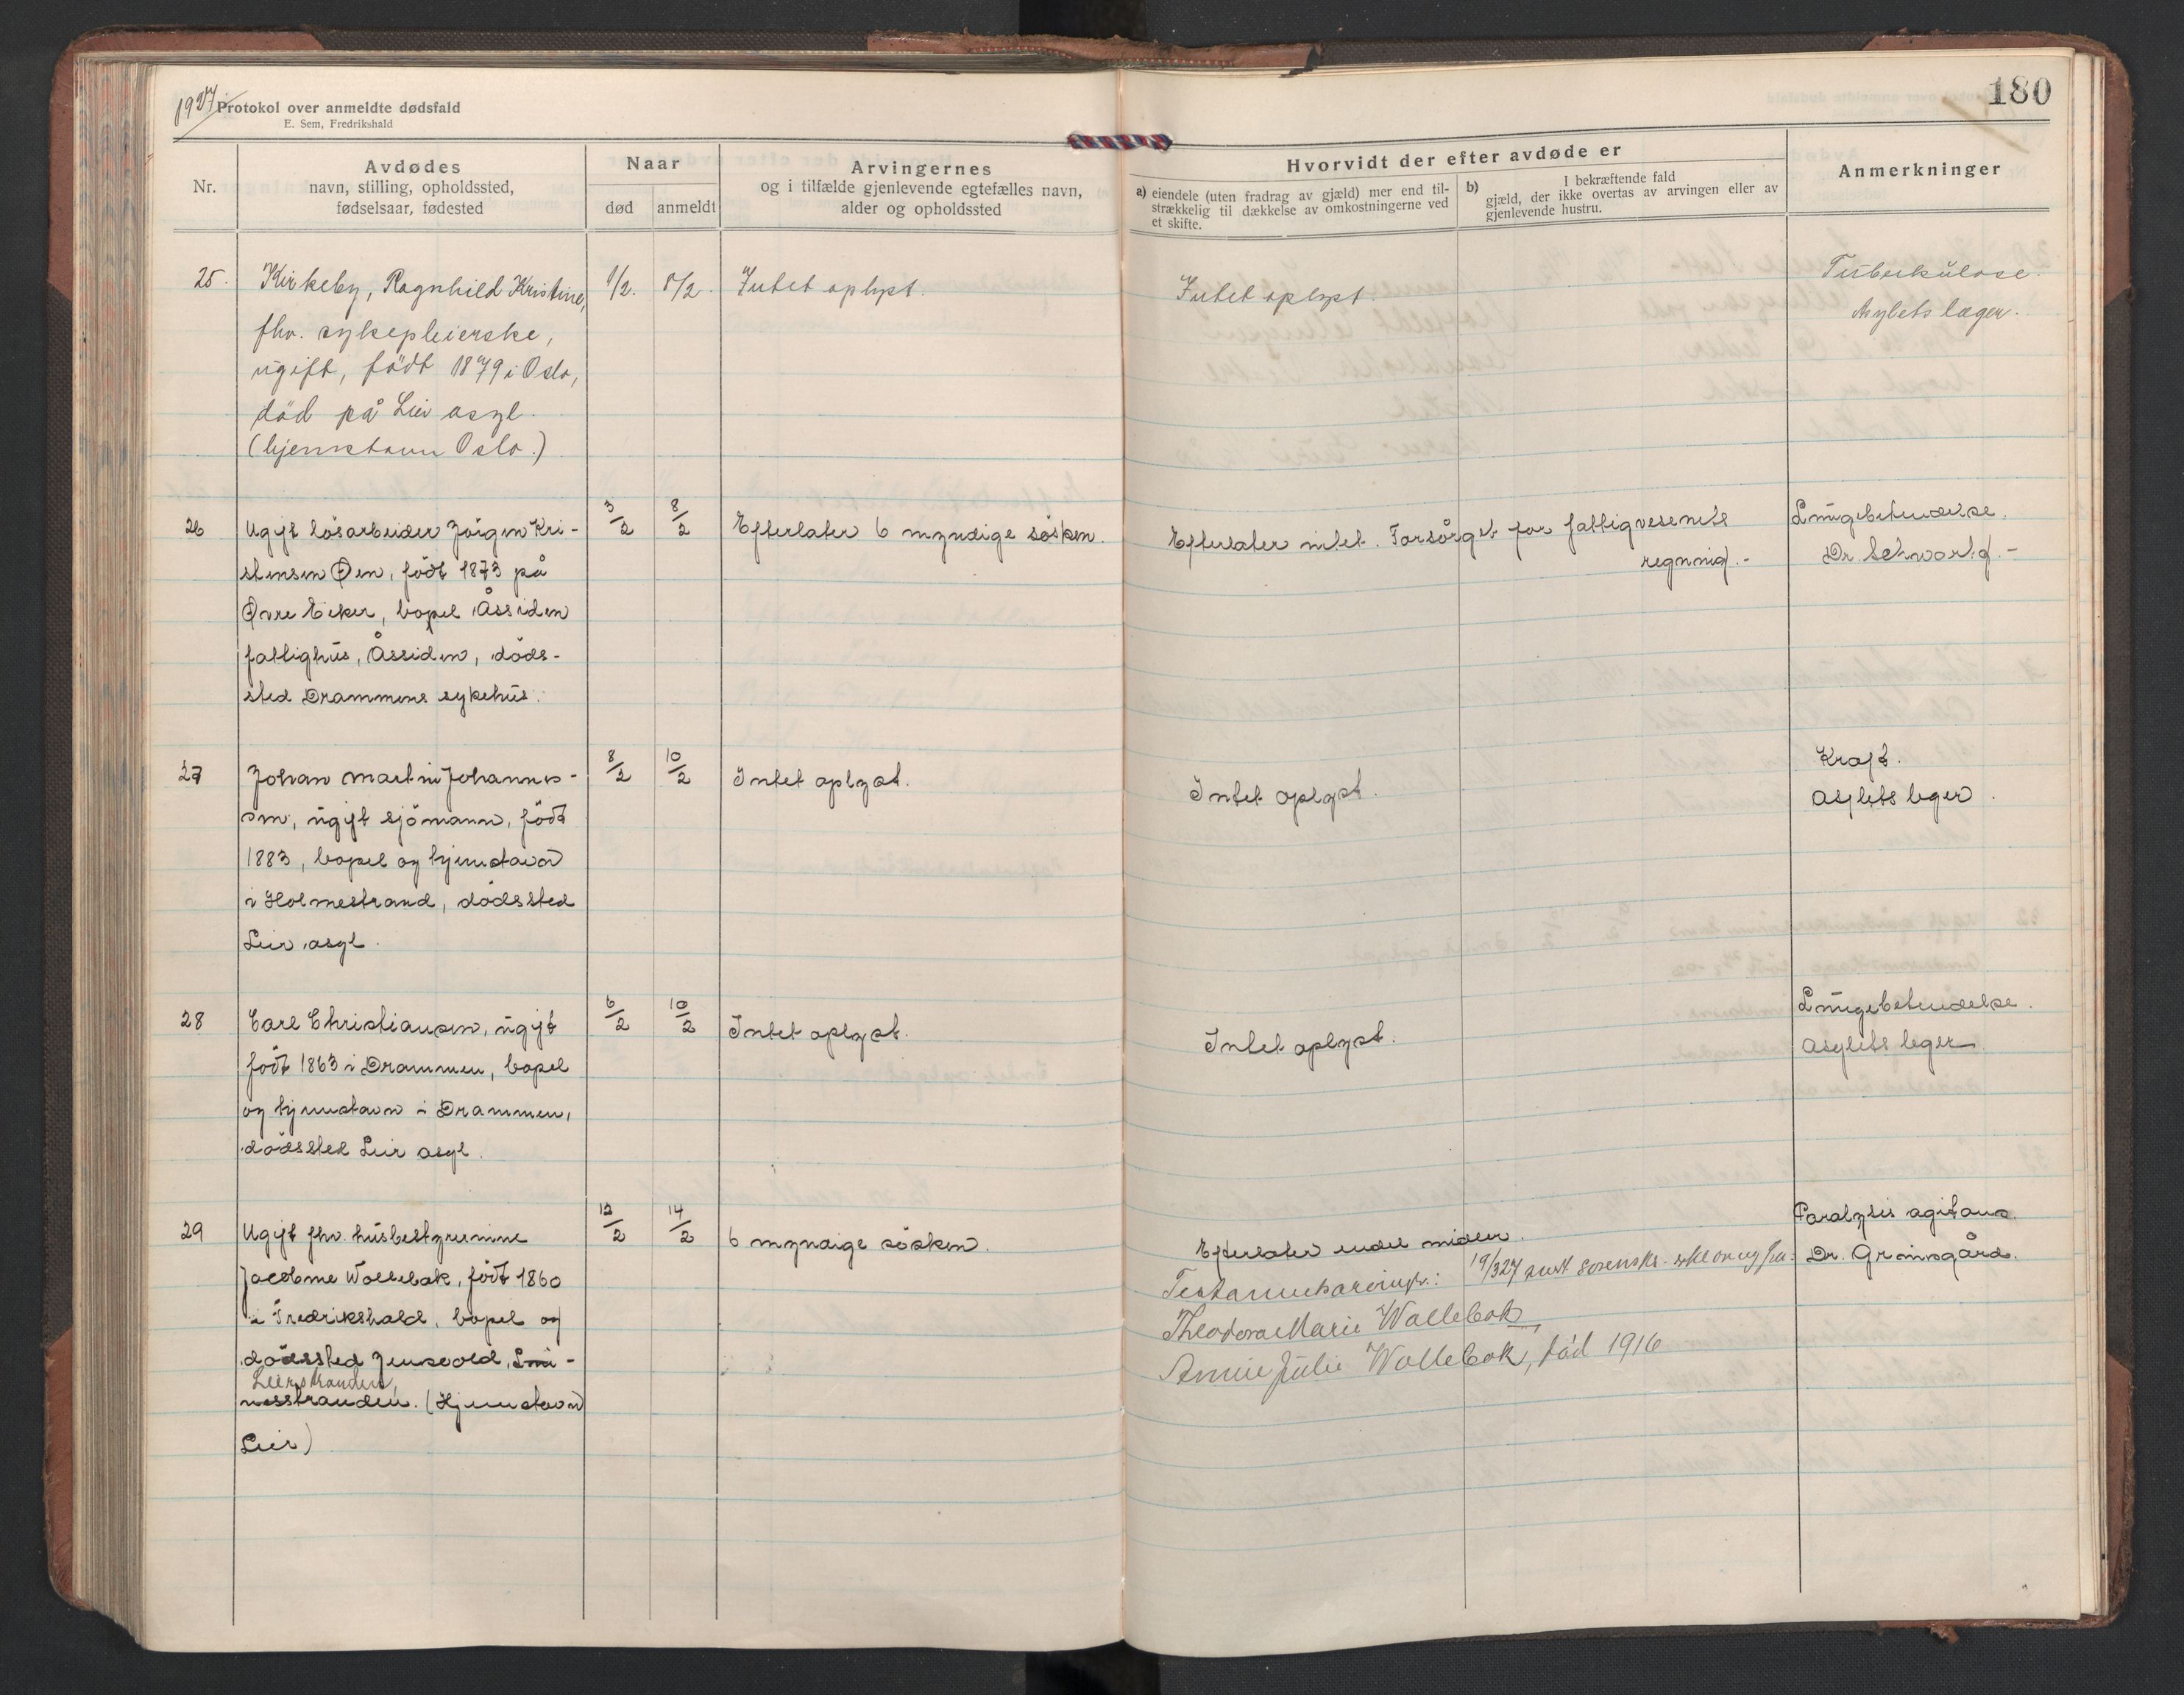 1927
Protokol over anmeldte dødsfald
E. Sem, Fredrikshald
180
Nr.
Avdødes
navn, stilling, opholdssted,
fødselsaar, fødested
Naar
død
anmeldt
Arvingernes
og i tilfælde gjenlevende egtefælles navn,
alder og opholdssted
Hvorvidt der efter avdøde er
a) eiendele (uten fradrag av gjæld) mer end til-
strækkelig til dækkelse av omkostningerne ved
et skifte.
b) I bekræftende fald
gjæld, der ikke overtas av arvingen eller av
gjenlevende hustru.
Anmerkninger
25.
Kirkeby, Ragnhild Kristine,
fhv. sykepleierske,
ugift, född 1879 i Oslo,
död på Lier asyl.
(hjemstavn Oslo.)
1/2.
8/2.
Intet oplyst.
Intet oplyst.
Tuberkulose.
Asylets læger.
26
Ugift lösarbeider Jörgen Kri-
stensen Øen, född 1873 på
Øvre Eiker, bopel Åssiden
fattighus, Åssiden, döds-
sted Drammens sykehus.
3/2
8/2
Efterlater 6 myndige sösken.
Efterlater intet. Forsörget for fattigvesenets
regning.-
Lungebetendelse.
Dr. Schwartz.-
27
Johan Martin Johannes-
sen, ugift sjömann, född
1883, bopel og hjemstavn
i Holmestrand, dödssted
Lier asyl.
8/2
10/2
Intet oplyst.
Intet oplyst.
Kraft.
Asylets leger.
28
Carl Christiansen, ugift
född 1863 i Drammen, bopel
og hjemstavn i Drammen,
dödssted Lier asyl.
6/2
10/2
Intet oplyst.
Intet oplyst.
Lungebetendelse.
Asylets leger.
29
Ugift fhv. husbestyrerinne
Jacobine Wollebæk, född 1860
i Fredrikshald, bopel og
dödssted Jensvold, Linn-
Lierstranden,
nesstranden. (Hjemstavn
Lier)
12/2
14/2
6 myndige sösken.
Efterlater endel midler.
Testamentsarving.:
19/3 27
Theodora Marie Wollebæk,
Annie Julie Wollebæk, död 1916
Paralysis agitans.
Dr. Grinsgård.